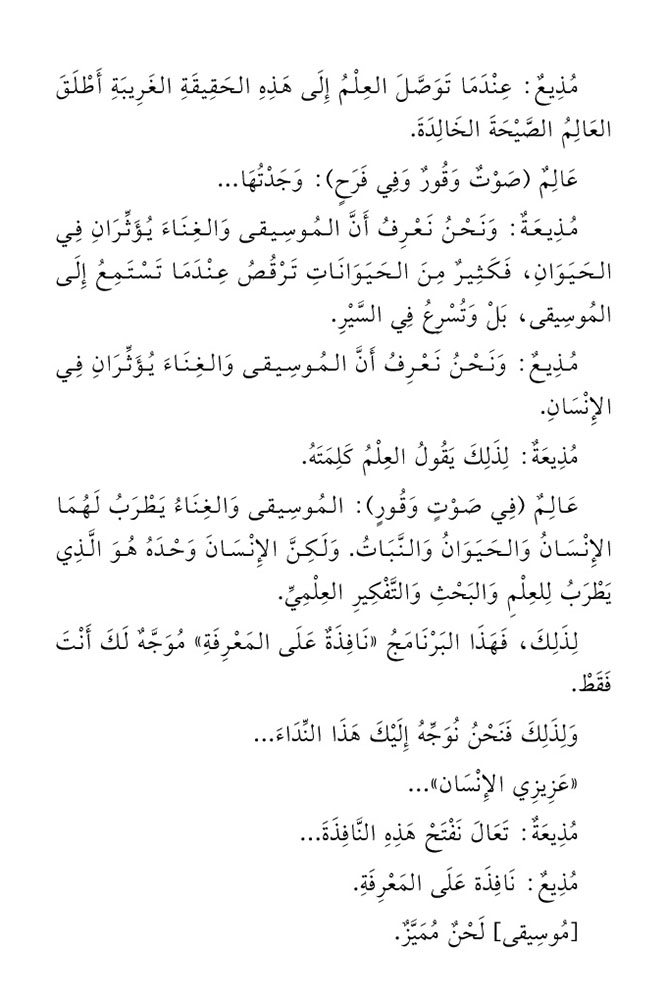 مُذِيعٌ: عِنْدَمَا تَوَصَّلَ العِلْمُ إِلَى هَذِهِ الحَقِيقَةِ الغَرِيبَةِ أَطْلَقَ
العَالِمُ الصَّيْحَةَ الخَالِدَةَ.
عَالِمٌ (صَوْتٌ وَقُورٌ وَفِي فَرَحٍ): وَجَدْتُهَا...
مُذِيعَةٌ: وَنَحْنُ نَعْرِفُ أَنَّ المُوسِيقى وَالغِنَاءَ يُؤَثِّرَانِ فِي
الحَيَوَانِ، فَكَثِيرٌ مِنَ الحَيَوَانَاتِ تَرْقُصُ عِنْدَمَا تَسْتَمِعُ إِلَى
المُوسِيقى، بَلْ وَتُسْرِعُ فِي السَّيْرِ.
مُذِيعٌ: وَنَحْنُ نَعْرِفُ أَنَّ المُوسِيقى وَالغِنَاءَ يُؤَثِّرَانِ فِي
الإِنْسَانِ.
مُذِيعَةٌ: لِذَلِكَ يَقُولُ العِلْمُ كَلِمَتَهُ.
عَالِمٌ (فِي صَوْتٍ وَقُورٍ): المُوسِيقى وَالغِنَاءُ يَطْرَبُ لَهُمَا
الإِنْسَانُ وَالحَيَوَانُ وَالنَّبَاتُ. وَلَكِنَّ الإِنْسَانَ وَحْدَهُ هُوَ الَّذِي
يَطْرَبُ لِلعِلْمِ وَالبَحْثِ وَالتَّفْكِيرِ العِلْمِيِّ.
لِذَلِكَ، فَهَذَا البَرْنَامَجُ «نَافِذَةٌ عَلَى المَعْرِفَةِ» مُوَجَّهٌ لَكَ أَنْتَ
فَقَطْ.
وَلِذَلِكَ فَنَحْنُ نُوَجِّهُ إِلَيْكَ هَذَا النِّدَاءَ...
«عَزِيزِي الإِنْسَان»...
مُذِيعَةٌ: تَعَالَ نَفْتَحْ هَذِهِ النَّافِذَةَ...
مُذِيعٌ: نَافِذَة عَلَى المَعْرِفَةِ.
[مُوسِيقى] لَحْنٌ مُمَيَّزٌ.